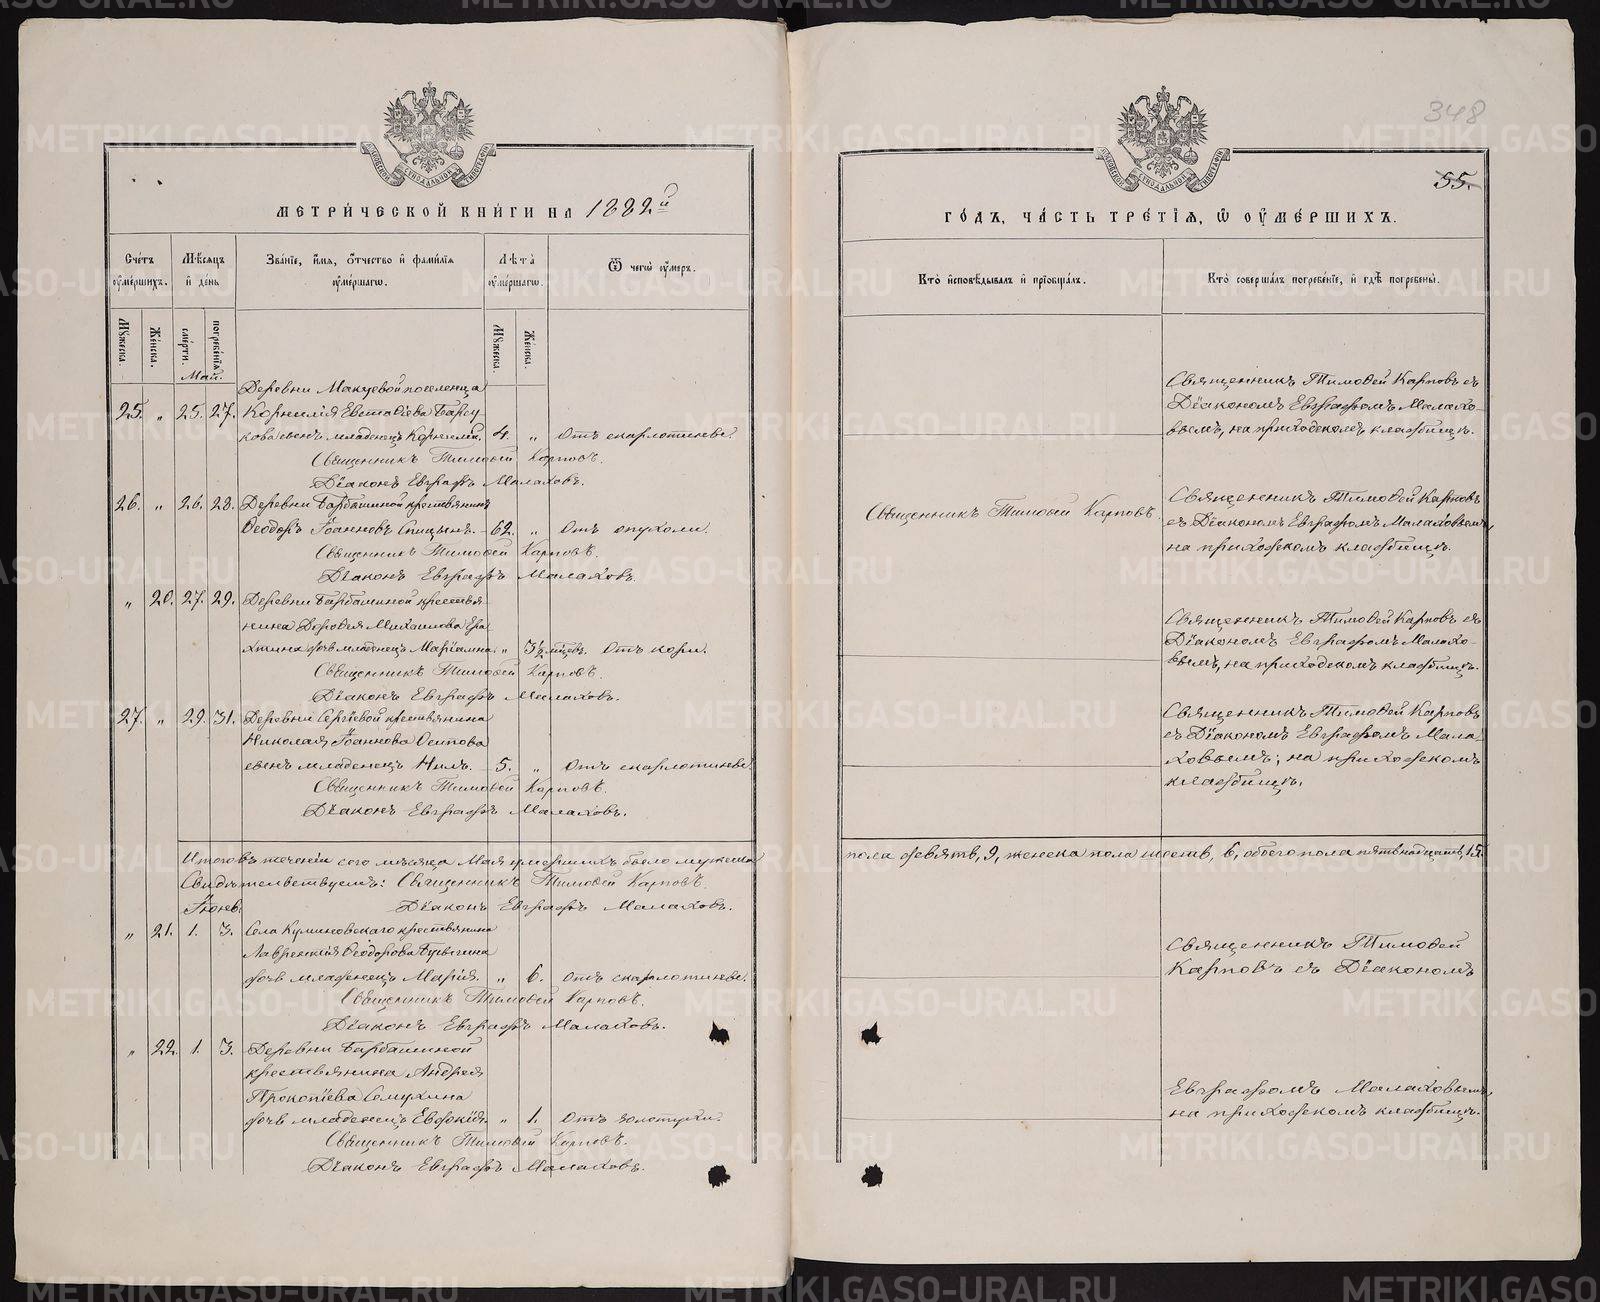 348
55.
МЕТРИЧЕСКОЙ КНИГИ НА 1882й
ГОДЪ, ЧАСТЬ ТРЕТІЯ, Ѿ ОУМЕРШИХЪ.
Счетъ оумершихъ.
Мѣсяцъ и день
Званіе, имя, отчество и фамилія оумершагѡ.
Лѣта оумершагѡ.
Ѿ чегѡ оумеръ.
Кто исповѣдывалъ и пріобщалъ.
Кто совершалъ погребеніе, и гдѣ погребены.
Мужеска.
Женска.
смерти.
погребенія
Мужеска.
Женска.
Май.
Деревни Макуевой поселенца
25. „ 25. 27. Корнилія Евстафіева Барсу
кова сынъ младенецъ Корнилій. 4. „ Отъ скарлатины.
Священникъ Тимофей Карповъ.
Діаконъ Евграфъ Малаховъ.
Священникъ Тимофей Карповъ съ
Діакономъ Евграфомъ Малахо-
вымъ, на приходскомъ кладбищѣ.
26. „ 26. 28. Деревни Барбашиной крестьянинъ
Ѳеодоръ Іоанновъ Спицынъ. 62. „ Отъ опухоли.
Священникъ Тимофей Карповъ.
Діаконъ Евграфъ Малаховъ.
Священникъ Тимофей Карповъ.
Священникъ Тимофей Карповъ
съ Діакономъ Евграфомъ Малаховымъ,
на приходскомъ кладбищѣ.
„ 20. 27. 29. Деревни Барбашиной крестья-
нина Дорофея Михаилова
дочь младенецъ Маріамна. „ 3½ мѣсяц. Отъ кори.
Священникъ Тимофей Карповъ.
Діаконъ Евграфъ Малаховъ.
Священникъ Тимофей Карповъ съ
Діакономъ Евграфомъ Малахо-
вымъ, на приходскомъ кладбищѣ.
27. „ 29. 31. Деревни Сергіевой крестьянина
Николая Іоаннова Осипова
сынъ младенецъ Нилъ. 5. „ Отъ скарлатины.
Священникъ Тимофей Карповъ.
Діаконъ Евграфъ Малаховъ.
Священникъ Тимофей Карповъ
съ Діакономъ Евграфомъ Мала-
ховымъ; на приходскомъ
кладбищѣ.
Итого въ теченіи сего мѣсяца Мая умершихъ было мужеска
пола девять, 9, женска пола шесть, 6, обоего пола пятьнадцать, 15.
Свидѣтельствуемъ: Священникъ Тимофей Карповъ.
Діаконъ Евграфъ Малаховъ.
Іюнь.
„ 21. 1. 3. Села Куминовскаго крестьянина
Лаврентія Ѳеодорова
дочь младенецъ Марія. „ 6. Отъ скарлатины.
Священникъ Тимофей Карповъ.
Діаконъ Евграфъ Малаховъ.
Священникъ Тимофей
Карповъ съ Діакономъ
„ 22. 1. 3. Деревни Барбашиной
крестьянина Андрея
Прокопіева
дочь младенецъ Евдокія. „ 1. Отъ золотухи.
Священникъ Тимофей Карповъ.
Діаконъ Евграфъ Малаховъ.
Евграфомъ Малаховымъ,
на приходскомъ кладбищѣ.